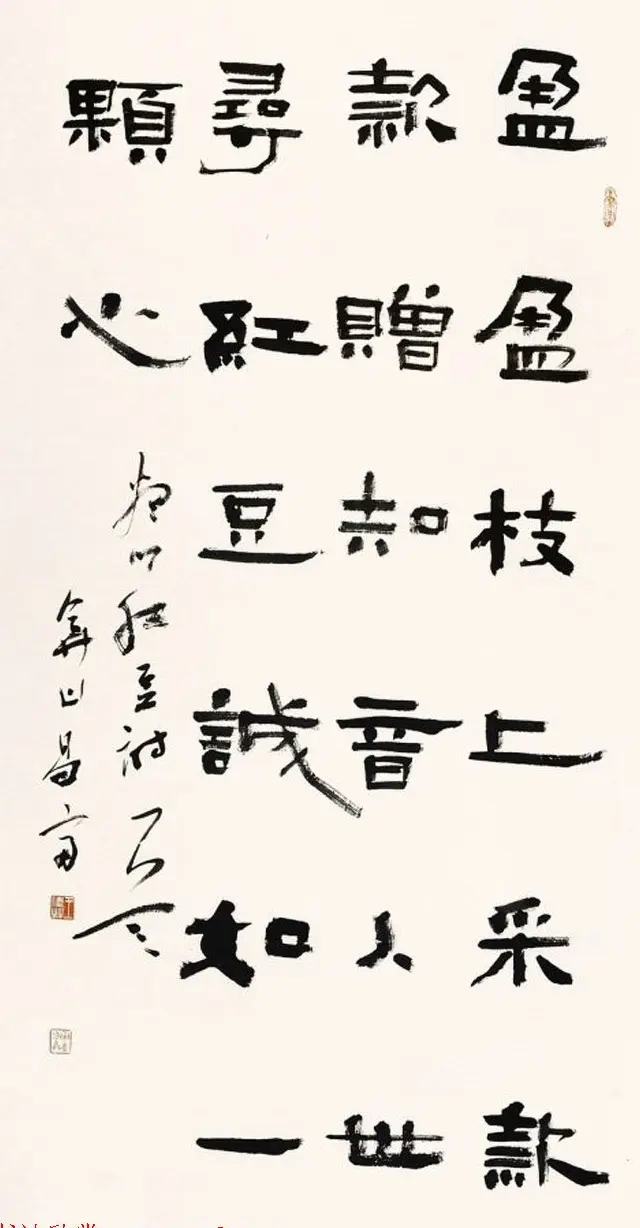 盈盈枝上采款
款贈知音人世
尋紅豆誠如一
顆心
紅豆詩
山昌